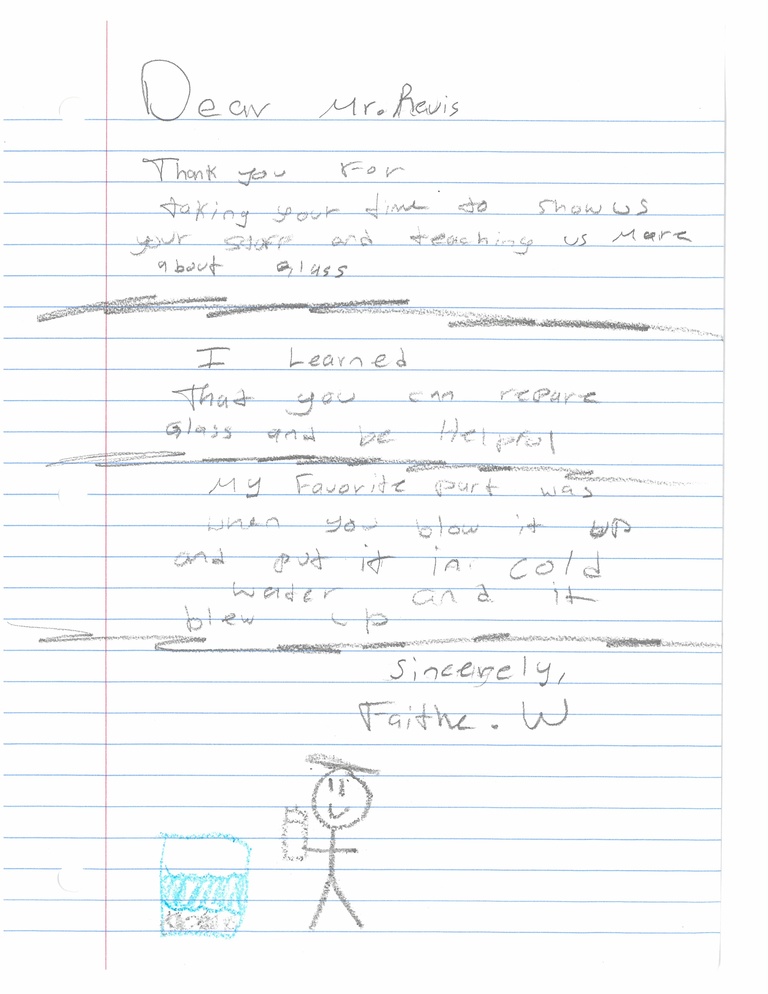 Dear Mr. Revis
Thank you For
taking your time to show us
your stuff and teaching us More
about Glass
I Learned
That you can repare
Glass and be Helpful
My Favorite part was
when you blow it up
and put it in cold
wader and it
blew up
Sincergely,
Faithe. W